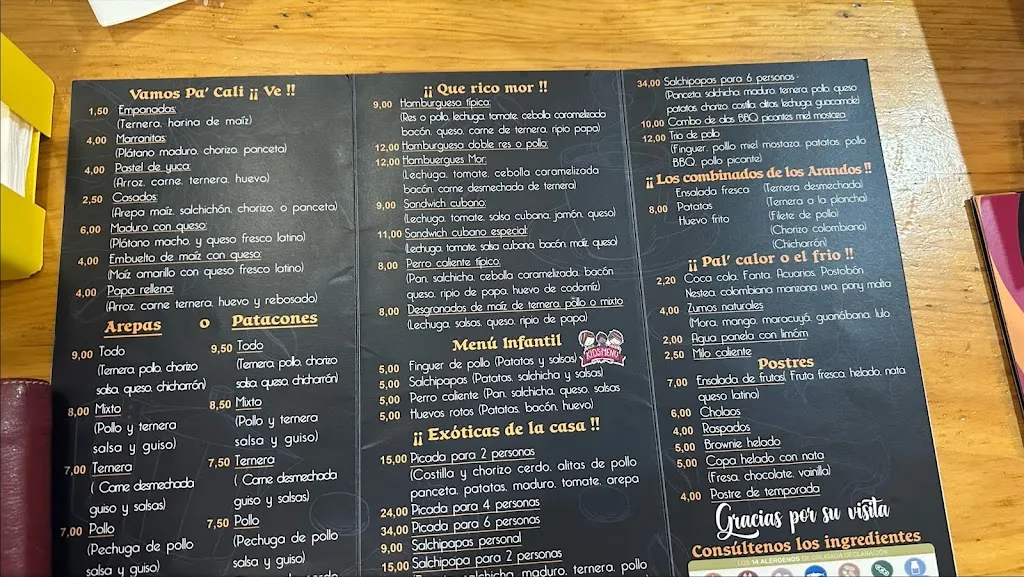 Vamos Pa' Cali ¡¡ Ve !!
1,50 Empanadas:
(Ternera, harina de maíz)
4,00 Marranitas:
(Plátano maduro, chorizo, panceta)
4,00 Pastel de yuca:
(Arroz, carne, ternera, huevo)
2,50 Casados:
(Arepa maíz, salchichón, chorizo, o panceta)
6,00 Maduro con queso:
(Plátano macho, y queso fresco latino)
4,00 Embuelto de maíz con queso:
(Maíz amarillo con queso fresco latino)
4,00 Papa rellena:
(Arroz, carne ternera, huevo y rebosado)
Arepas o Patacones
9,00 Todo
(Ternera, pollo, chorizo
salsa, queso, chicharrón)
8,00 Mixto
(Pollo y ternera
salsa y guiso)
7,00 Ternera
( Carne desmechada
guiso y salsas)
7,00 Pollo
(Pechuga de pollo
salsa y guiso)
9,50 Todo
(Ternera, pollo, chorizo
salsa, queso, chicharrón)
8,50 Mixto
(Pollo y ternera
salsa y guiso)
7,50 Ternera
( Carne desmechada
guiso y salsas)
7,50 Pollo
(Pechuga de pollo
salsa y guiso)
¡¡ Que rico mor !!
9,00 Hamburguesa típica:
(Res o pollo, lechuga, tomate, cebolla caramelizada
bacón, queso, carne de ternera, ripio papa)
12,00 Hamburguesa doble res o pollo:
12,00 Hamburguers Mor:
(Lechuga, tomate, cebolla caramelizada
bacón, carne desmechada de ternera)
9,00 Sandwich cubano:
(Lechuga, tomate, salsa cubana, jamón, queso)
11,00 Sandwich cubano especial:
(Lechuga, tomate, salsa cubana, bacón, maíz, queso)
8,00 Perro caliente típico:
(Pan, salchicha, cebolla caramelizada, bacón
queso, ripio de papa, huevo de codorníz)
8,00 Desgranados de maíz de ternera, pollo o mixto
(Lechuga, salsas, queso, ripio de papa)
Menú Infantil
KIDS MENU
5,00 Finguer de pollo (Patatas y salsas)
5,00 Salchipapas (Patatas, salchicha y salsas)
5,00 Perro caliente (Pan, salchicha, queso, salsas
5,00 Huevos rotos (Patatas, bacón, huevo)
¡¡ Exóticas de la casa !!
15,00 Picada para 2 personas
(Costilla y chorizo cerdo, alitas de pollo
panceta, patatas, maduro, tomate, arepa
24,00 Picada para 4 personas
34,00 Picada para 6 personas
9,00 Salchipapas personal
15,00 Salchipapa para 2 personas
salchicha, maduro, ternera, pollo
34,00 Salchipapas para 6 personas
(Panceta, salchicha, maduro, ternera, pollo, queso
patatas, chorizo, costilla, alitas, lechuga, guacamole)
10,00 Combo de alas BBQ picantes miel mostaza
12,00 Trio de pollo
(Finguer, polllo miel mostaza, patatas, pollo
BBQ, pollo picante)
¡¡ Los combinados de los Arandos !!
8,00
Ensalada fresca
Patatas
Huevo frito
(Ternera desmechada)
(Ternera a la plancha)
(Filete de pollo)
(Chorizo colombiano)
(Chicharrón)
¡¡ Pal' calor o el frio !!
2,20 Coca cola, Fanta, Acuarius, Postobón,
Nestea, colombiana, manzana, uva, pony malta
4,00 Zumos naturales
(Mora, mango, maracuyá, guanábana, lulo
2,00 Agua panela con limóm
2,50 Milo caliente
Postres
7,00 Ensalada de frutas( Fruta fresca, helado, nata
queso latino)
6,00 Cholaos
4,00 Raspados
5,00 Brownie helado
5,00 Copa helado con nata
(Fresa, chocolate, vainilla)
4,00 Postre de temporada
Gracias por su visita
Consúltenos los ingredientes
LOS 14 ALÉRGENOS DE OBLIGADA DECLARACIÓN